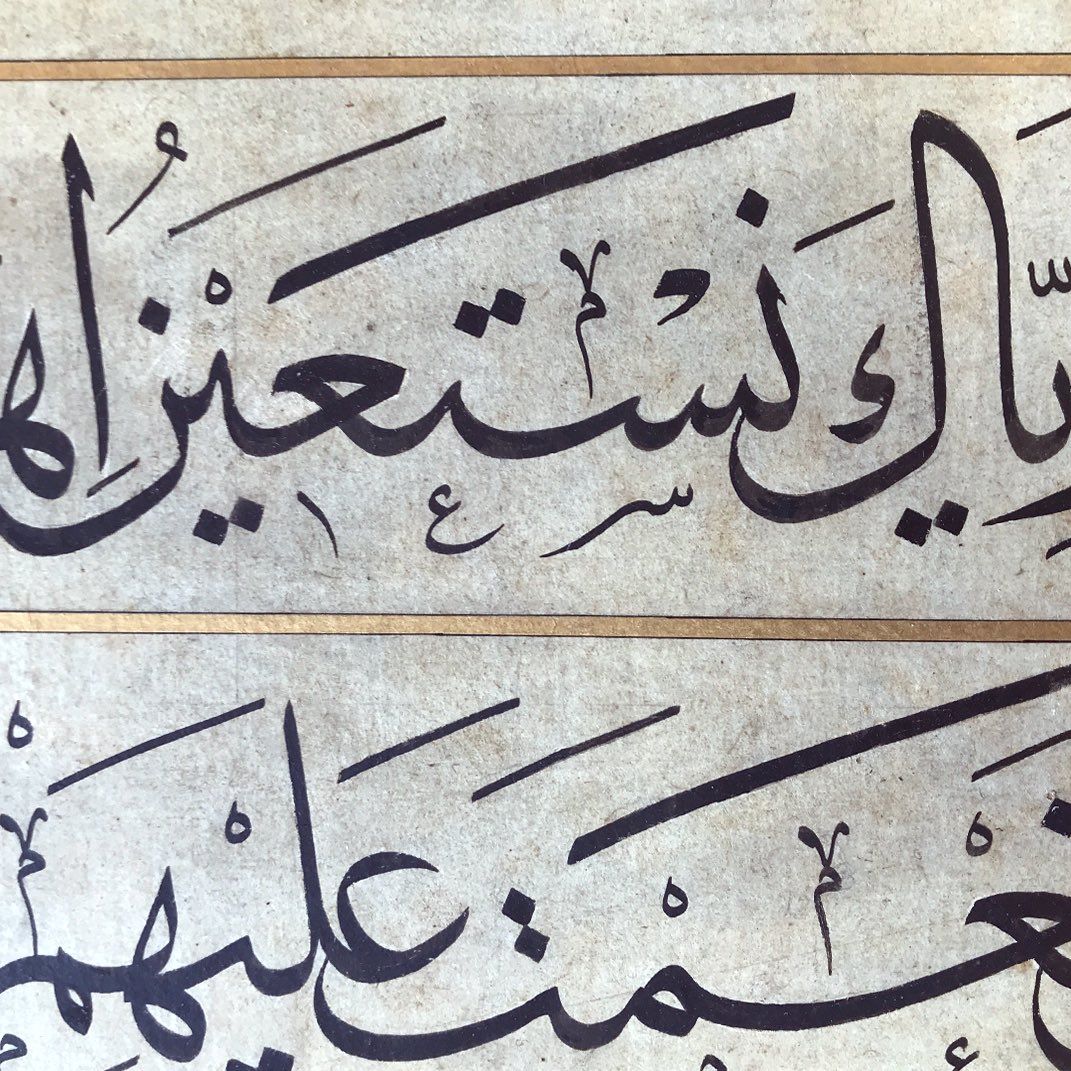 إِيَّاكَ نَسْتَعِينُ اهْ
أَنْعَمْتَ عَلَيْهِمْ